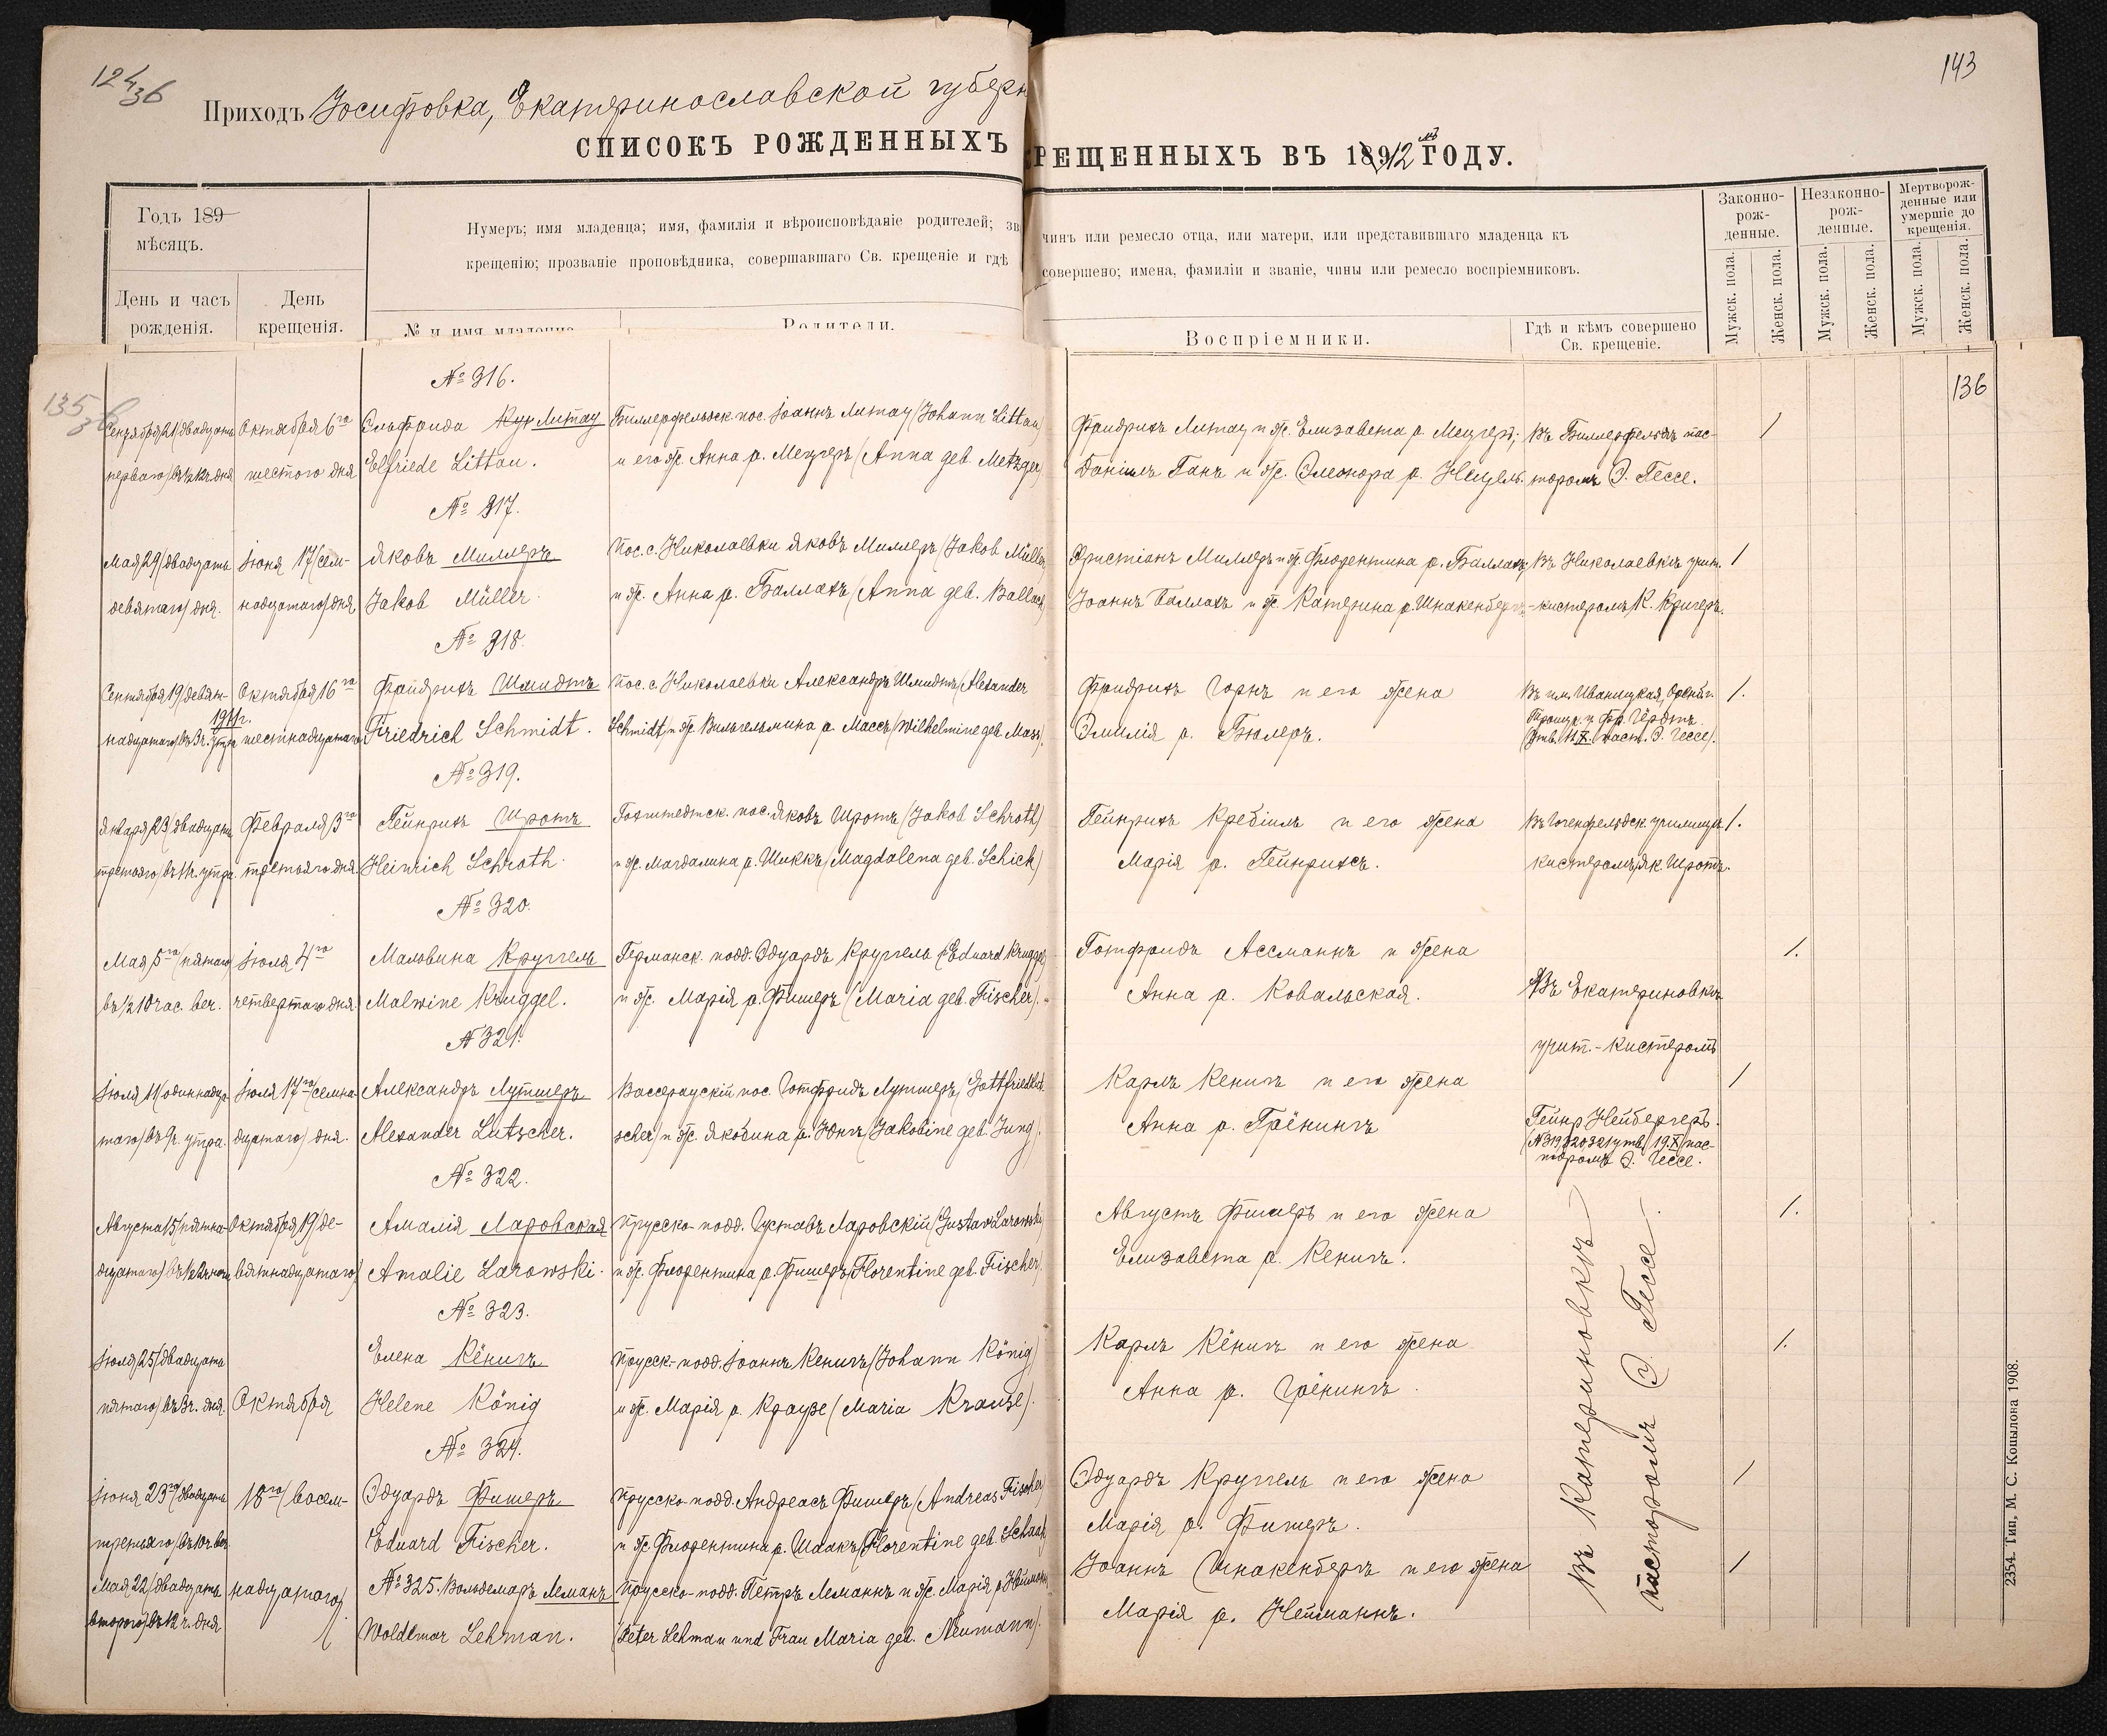 124/36
143
Приходъ Іосифовка, Екатеринославской губерн
СПИСОКЪ РОЖДЕННЫХЪ
КРЕЩЕННЫХЪ ВЪ 18912 мъ ГОДУ.
Годъ 189
мѣсяцъ.
День и часъ рожденія.
День крещенія.
Нумеръ; имя младенца; имя, фамилія и вѣроисповѣданіе родителей; зв
крещенію; прозваніе проповѣдника, совершавшаго Св. крещеніе и гдѣ
№ и имя младенца
Родители.
чинъ или ремесло отца, или матери, или представившаго младенца къ
совершено; имена, фамиліи и званіе, чины или ремесло воспріемниковъ.
Воспріемники.
Гдѣ и кѣмъ совершено Св. крещеніе.
Законно-рож-денные.
Незаконно-рож-денные.
Мертворож-денные или умершіе до крещенія.
Мужск. пола.
Женск. пола.
Мужск. пола.
Женск. пола.
Мужск. пола.
Женск. пола.
135
136
№ 316.
Сентября 21 (двадцать Октября 6го Эльфрида Литау Биллерфельдск. пос. Іоаннъ Литау (Johann Littau) Фридрихъ Литау и ж. Елизавета р. Мецгеръ; Въ Биллерфельдѣ пас- 1
перваго) дня шестого дня Elfriede Littau. и его ж. Анна р. Мецгеръ (Anna geb. Metzger) Даніилъ Ганъ и ж. Элеонора р. торомъ Э. Гессе.
№ 317.
Мая 29 (двадцать Іюня 17 (сем- Яковъ Миллеръ Пос. с. Николаевки Яковъ Миллеръ (Jakob Müller) Христіанъ Миллеръ и ж. Флорентина р. Баллахъ; Въ Николаевкѣ учит. 1
девятаго) дня. надцатаго) дня Jakob Müller. и ж. Анна р. Баллахъ (Anna geb. Ballach) Іоаннъ Баллахъ и ж. Катерина р. Шнакенбергъ. -кистеромъ К. Кригеръ.
№ 318.
Сентября 19 (девят- Октября 16го Фридрихъ Шмидтъ Пос. с. Николаевки Александръ Шмидтъ (Alexander Фридрихъ Горнъ и его жена Въ им. Иваницкая, 1.
1911г.
надцатаго) въ 3 ч. утра шестнадцатаго Friedrich Schmidt. Schmidt) и ж. Вильгельмина р. Массъ (Wilhelmine geb. Mass). Эмилія р. Бюлеръ. Фр. Гёрдтъ.
(Утв. 11.X. паст. Э. Гессе).
№ 319.
Января 23 (двадцать Февраля 3го Гейнрихъ Шротъ пос. Яковъ Шротъ (Jakob Schroth) Гейнрихъ Кребіилъ и его жена Въ Гогенфельдск. училищѣ 1.
третьяго) въ 11 ч. утра. третьяго дня. Heinrich Schroth. и ж. Магдалина р. Шиккъ (Magdalena geb. Schick) Марія р. Гейнрихсъ. кистеромъ Як. Шротъ.
№ 320.
Мая 5го (пятаго) Іюля 4го Мальвина Круггель Германск. подд. Эдуардъ Круггель (Eduard Kruggel) Готфридъ Ассманнъ и жена 1.
въ ½ 10 час. веч. четвертаго дня. Malwine Kruggel. и ж. Марія р. Фишеръ (Maria geb. Fischer). Анна р. Ковальская. Въ Екатериновкѣ
№ 321.
учит.-кистеромъ
Іюля 11 (одиннадца- Іюля 17го (семна- Александръ Лутшеръ Вассераускій пос. Готфридъ Лутшеръ (Gottfried Lut- Карлъ Кенигъ и его жена 1
таго) въ 9 ч. утра. дцатаго) дня. Alexander Lutscher. scher) и ж. Якобина р. Юнгъ (Jakobine geb. Jung). Анна р. Грёнингъ Гейнр. Нейбергеръ.
(№ 319, 320, 321 утв. 19.X. пас-
торомъ Э. Гессе.
№ 322.
Августа 15 (пятна- Октября 19 (де- Амалія Ларовская Прусско-подд. Густавъ Ларовскій (Gustav Larowski) Августъ Фишеръ и его жена 1.
дцатаго) вятнадцатаго) Amalie Larowski. и ж. Флорентина р. Фишеръ (Florentine geb. Fischer). Елизавета р. Кенигъ.
№ 323.
Іюля 25 (двадцать Елена Кёнигъ Прусск.-подд. Іоаннъ Кенигъ (Johann König) Карлъ Кёнигъ и его жена 1.
пятаго) въ 3 ч. дня. Октября Helene König и ж. Марія р. Краузе (Maria Krause). Анна р. Грёнингъ.
№ 324.
Іюня 23го (двадцать 18го (восем- Эдуардъ Фишеръ Прусско-подд. Андреасъ Фишеръ (Andreas Fischer) Эдуардъ Круггель и его жена 1
третьяго) въ 10 ч. веч. Eduard Fischer. и ж. Флорентина р. Шаакъ (Florentine geb. Schaak) Марія р. Фишеръ.
Мая 22 (двадцать надцатаго) № 325. Вольдемаръ Леманъ Прусско-подд. Петръ Леманнъ и ж. Марія р. Нейманнъ Іоаннъ Шнакенбергъ и его жена 1
второго) въ 12 ч. дня Woldemar Lehman. (Peter Lehman und Frau Maria geb. Neumann). Марія р. Нейманнъ.
Въ Катериновкѣ
пасторомъ Э. Гессе.
2354. Тип. М. С. Копылова 1908.